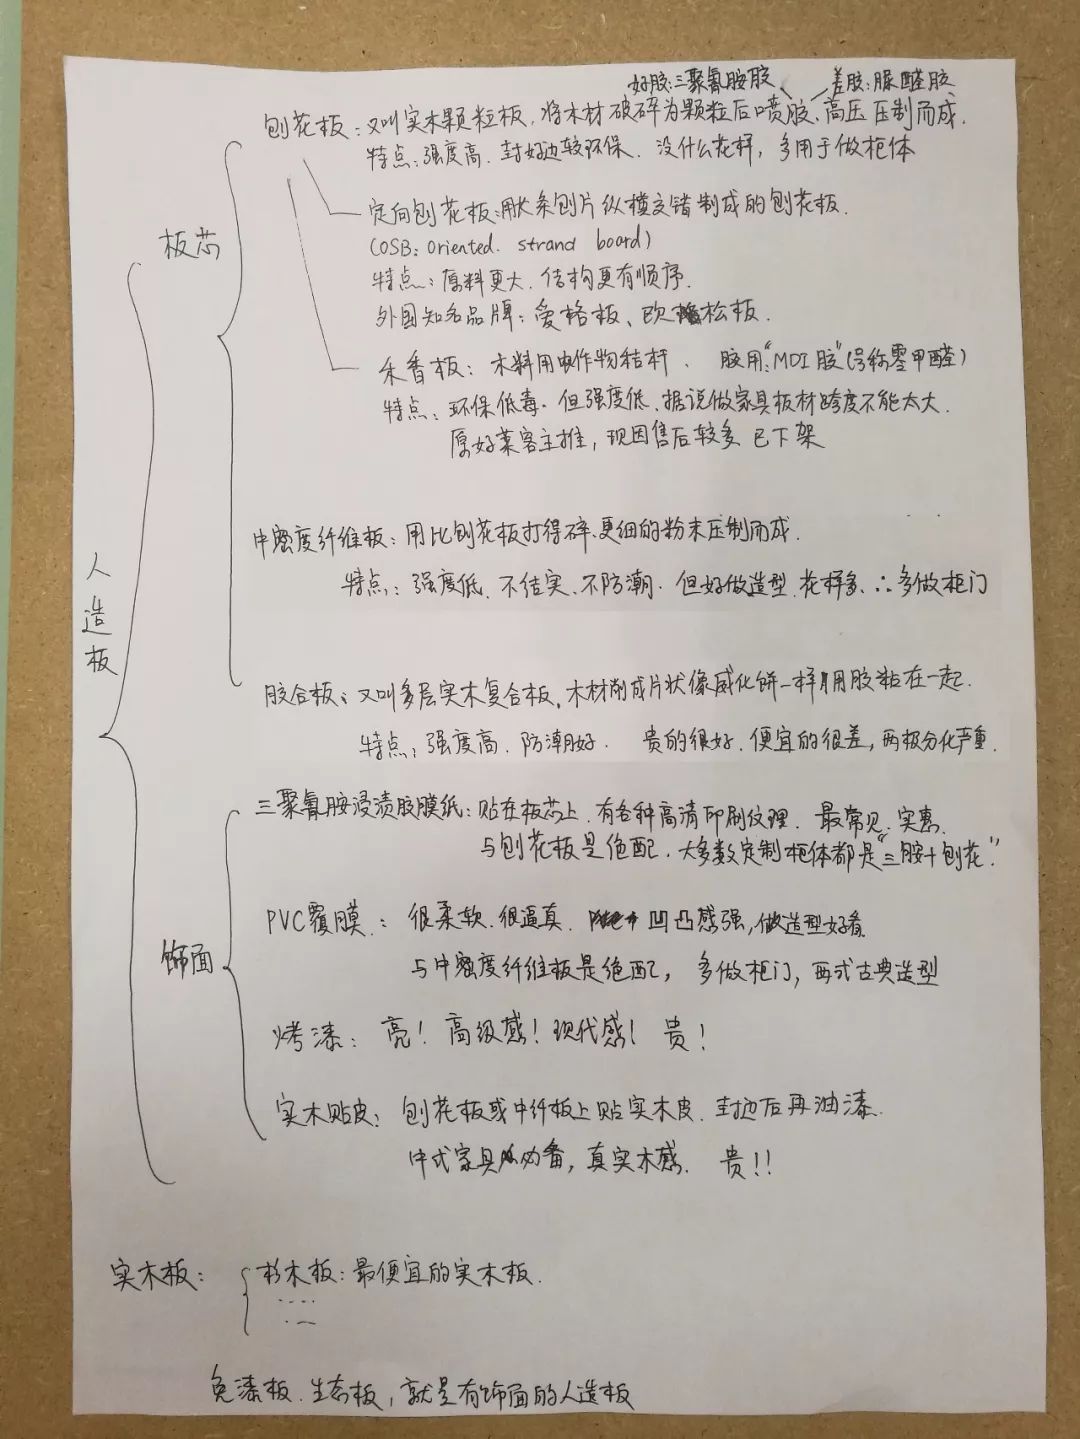 好胶:三聚氰胺胶 差胶:脲醛胶
刨花板:又叫实木颗粒板,将木材破碎为颗粒后喷胶、高压压制而成.
特点:强度高.封好边较环保.没什么花样,多用于做柜体
板芯
定向刨花板:用长条刨片纵横交错制成的刨花板.
(OSB: oriented. strand board)
特点:原料更大.结构更有顺序.
外国知名品牌:爱格板、欧松板.
禾香板:木料用农作物秸杆、胶用:"MDI胶"(号称零甲醛)
特点:环保低毒.但强度低.据说做家具板材跨度不能太大.
原好莱客主推,现因售后较多已下架
中密度纤维板:用比刨花板打得碎.更细的粉末压制而成.
人造板
特点:强度低、不结实、不防潮.但好做造型.花样多.∴多做柜门
胶合板:又叫多层实木复合板.木材削成片状像威化饼一样用胶粘在一起.
特点:强度高.防潮好.贵的很好.便宜的很差,两极分化严重.
三聚氰胺浸渍胶膜纸:贴在板芯上.有各种高清印刷纹理.最常见.实惠.
与刨花板是绝配.大多数定制柜体都是"三胺+刨花".
PVC覆膜:很柔软.很逼真.凹凸感强,做造型好看
饰面
与中密度纤维板是绝配,多做柜门,西式古典造型
烤漆:亮!高级感!现代感!贵!
实木贴皮:刨花板或中纤板上贴实木皮.封边后再油漆.
中式家具必备,真实木感.贵!!
实木板:杉木板:最便宜的实木板.
....
...
免漆板.生态板,就是有饰面的人造板